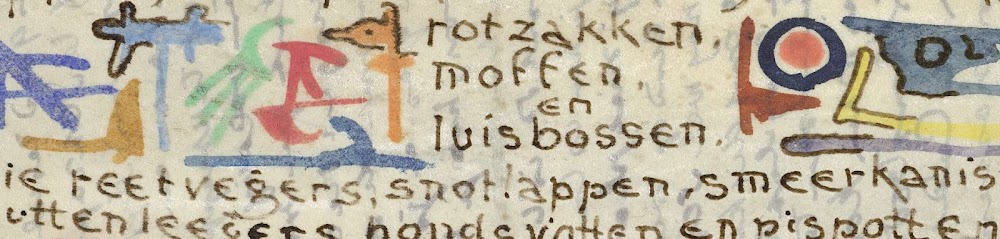 rotzakken,
moffen,
en
luisbossen.
ie reetvegers, snotlappen, smeerkanis
uttenleegers hondsvotten en pispotten